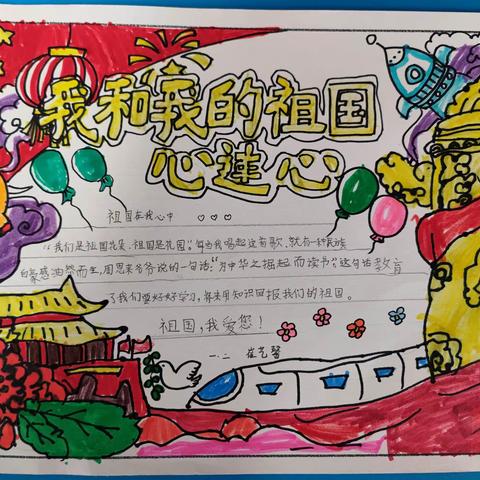 我和我的祖国
心连心
祖国在我心中
“我们是祖国花朵,祖国是花园。”每当我唱起这首歌,就有一种民族
自豪感油然而生,周恩来爷爷说的一句话:“为中华之掘起而读书”。这句话教育
了我们要好好学习,将来用知识回报我们的祖国。
祖国,我爱您!
一.二 崔艺馨